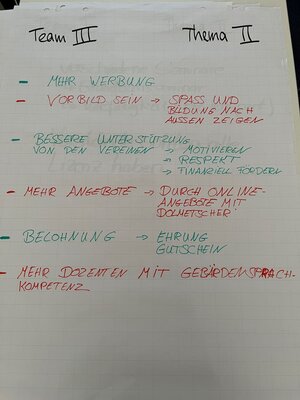 Team III Thema II
- MEHR WERBUNG
- VORBILD SEIN → SPASS UND
BILDUNG NACH
AUSSEN ZEIGEN
- BESSERE UNTERSTÜTZUNG
VON DEN VEREINEN → MOTIVIEREN
→ RESPEKT
→ FINANZIELL FÖRDERN
- MEHR ANGEBOTE → DURCH ONLINE-
ANGEBOTE MIT
DOLMETSCHER
- BELOHNUNG → EHRUNG
GUTSCHEIN
- MEHR DOZENTEN MIT GEBÄRDENSPRACH-
KOMPETENZ